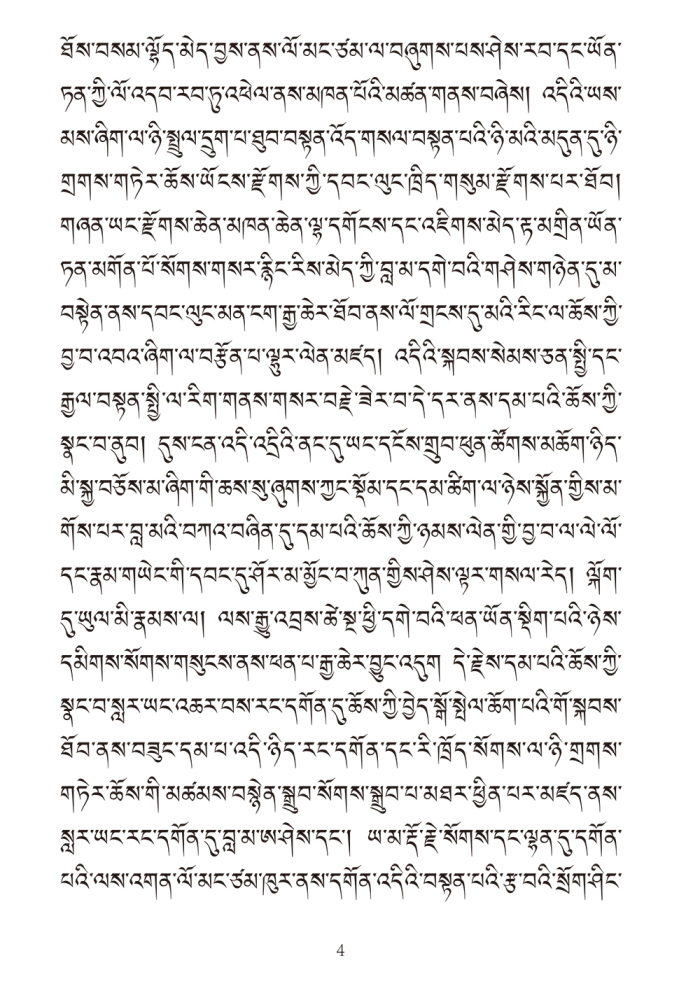 ཐོས་བསམ་ལྷོད་མེད་བྱས་ནས་ལོ་མང་ཙམ་ལ་བཞུགས་པས་ཤེས་རབ་དང་ཡོན་
ཏན་ཀྱི་ལོ་འདབ་རབ་ཏུ་འཕེལ་ནས་མཁན་པོའི་མཚན་གནས་བཞེས། འདིའི་ཡས་
མས་ཞིག་ལ་ཉི་སྤྲུལ་དྲུག་པ་ཐུབ་བསྟན་འོད་གསལ་བསྟན་པའི་ཉི་མའི་མདུན་དུ་ཉི་
གྲགས་གཏེར་ཆོས་ཡོངས་རྫོགས་ཀྱི་དབང་ལུང་ཁྲིད་གསུམ་རྫོགས་པར་ཐོབ།
གཞན་ཡང་རྫོགས་ཆེན་མཁན་ཆེན་ལྷ་དགོངས་དང་འཇིགས་མེད་རྟ་མགྲིན་ཡོན་
ཏན་མགོན་པོ་སོགས་གསར་རྙིང་རིས་མེད་ཀྱི་བླ་མ་དགེ་བའི་གཤེས་གཉེན་དུ་མ་
བསྟེན་ནས་དབང་ལུང་མན་ངག་རྒྱ་ཆེར་ཐོབ་ནས་ལོ་གྲངས་དུ་མའི་རིང་ལ་ཆོས་ཀྱི་
བྱ་བ་འབའ་ཞིག་ལ་བརྩོན་པ་ལྷུར་ལེན་མཛད། འདིའི་སྐབས་སེམས་ཅན་སྤྱི་དང་
རྒྱལ་བསྟན་སྤྱི་ལ་རིག་གནས་གསར་བརྗེ་ཟེར་བ་དེ་དར་ནས་དམ་པའི་ཆོས་ཀྱི་
སྣང་བ་ནུབ། དུས་ངན་འདི་འདྲིའི་ནང་དུ་ཡང་དངོས་གྲུབ་ཕུན་ཚོགས་མཆོག་ཉིད་
མི་སྐྱ་བཅོས་མ་ཞིག་གི་ཆས་སུ་ཞུགས་ཀྱང་སྡོམ་དང་དམ་ཚིག་ལ་ཉེས་སྐྱོན་གྱིས་མ་
གོས་པར་བླ་མའི་བཀའ་བཞིན་དུ་དམ་པའི་ཆོས་ཀྱི་ཉམས་ལེན་གྱི་བྱ་བ་ལ་ལེ་ལོ་
དང་རྣམ་གཡེང་གི་དབང་དུ་ཤོར་མ་མྱོང་བ་ཀུན་གྱིས་ཤེས་ལྟར་གསལ་རེད། ལྐོག་
དུ་ཡུལ་མི་རྣམས་ལ། ལས་རྒྱུ་འབྲས་ཚེ་སྔ་ཕྱི་དགེ་བའི་ཕན་ཡོན་སྡིག་པའི་ཉེས་
དམིགས་སོགས་གསུངས་ནས་ཕན་པ་རྒྱ་ཆེར་བྱུང་འདུག དེ་རྗེས་དམ་པའི་ཆོས་ཀྱི་
སྣང་བ་སླར་ཡང་འཆར་བས་རང་དགོན་དུ་ཆོས་ཀྱི་བྱེད་སྒོ་སྤེལ་ཆོག་པའི་གོ་སྐབས་
ཐོབ་ནས་བཟུང་དམ་པ་འདི་ཉིད་རང་དགོན་དང་རི་ཁྲོད་སོགས་ལ་ཉི་གྲགས་
གཏེར་ཆོས་གི་མཚམས་བསྙེན་སྒྲུབ་སོགས་སྒྲུབ་པ་མཐར་ཕྱིན་པར་མཛད་ནས་
སླར་ཡང་རང་དགོན་དུ་བླ་མ་ཨ་ཤེས་དང༌། ཡ་མ་རྡོ་རྗེ་སོགས་དང་ལྷན་དུ་དགོན་
པའི་ལས་འགན་ལོ་མང་ཙམ་ཁུར་ནས་དགོན་འདིའི་བསྟན་པའི་རྩ་བའི་སྲོག་ཤིང་
4